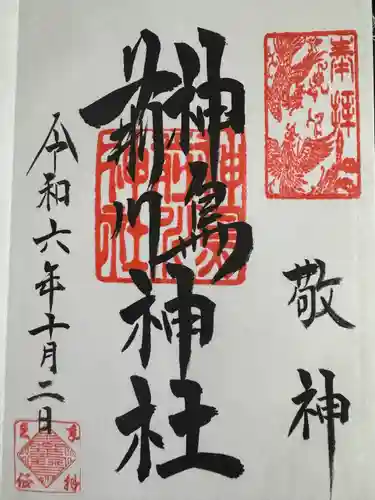 奉拝
敬神
神鳥
前川
神社
神鳥前川神社
令和六年十月二日